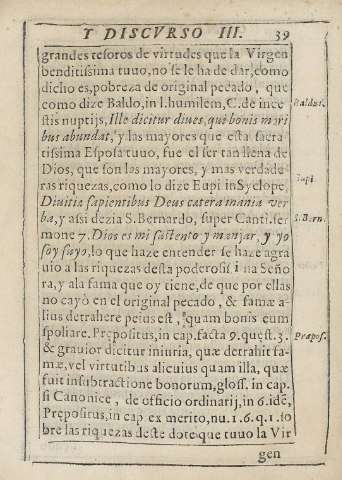 Y DISCVRSO III. 39
grandes tesoros de virtudes que la Virgen
benditissima tuuo, no se le ha de dar, como
dicho es, pobreza de original pecado, que
como dize Baldo, in l. humilem, C. de ince
stis nuptijs, Ille dicitur diues, qui bonis mori
bus abundat, y las mayores que esta sacra
tissima Esposa tuuo, fue el ser tan llena de
Dios, que son las mayores, y mas verdade
ras riquezas, como lo dize Eupi in Syclope,
Diuitia sapientibus Deus catera inania ver
ba, y assi dezia S. Bernardo, super Canti. ser
mone 7. Dios es mi sustento y manjar, y yo
soy suyo, lo que haze entender se haze agra
uio a las riquezas desta poderosissima Seño
ra, y ala fama que oy tiene, de que por ellas
no cayò en el original pecado, & famæ a-
lius detrahere peius est, quam bonis eum
spoliare. Prepositus, in cap. facta 9. quest. 3.
& grauior dicitur iniuria, quæ detrahit fa-
mæ, vel virtutibus alicuius quam illa, quæ
fuit in subtractione bonorum, gloss. in cap.
si Canonice, de officio ordinarij, in 6. idẽ,
Prepositus, in cap ex merito, nu. 1. 6. q. 1. so
bre las riquezas deste dote que tuuo la Vir
gen
Baldus.
Eupi.
S. Bern.
Prepos.